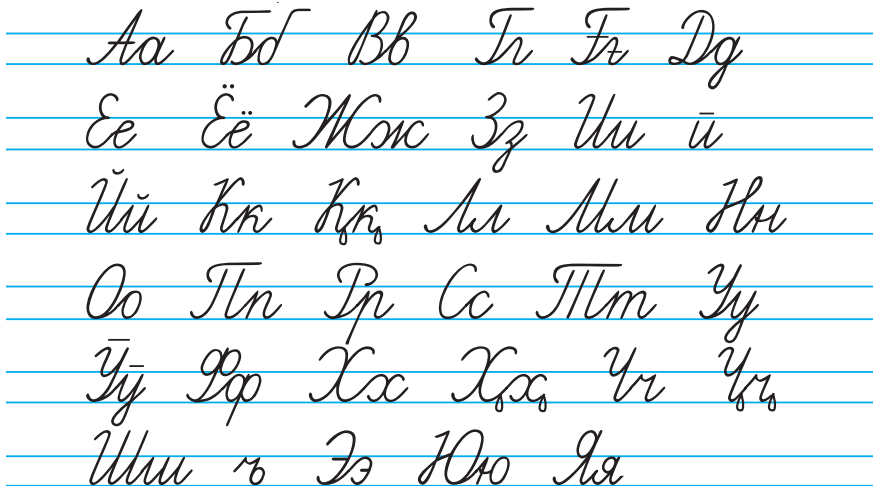 Аа Бб Вв Гг Ғғ Дд
Ее Ёё Жж Зз Ии ӣ
Йй Кк Ққ Лл Мм Нн
Оо Пп Рр Сс Тт Уу
Ӯӯ Фф Хх Ҳҳ Чч Ҷҷ
Шш ъ Ээ Юю Яя